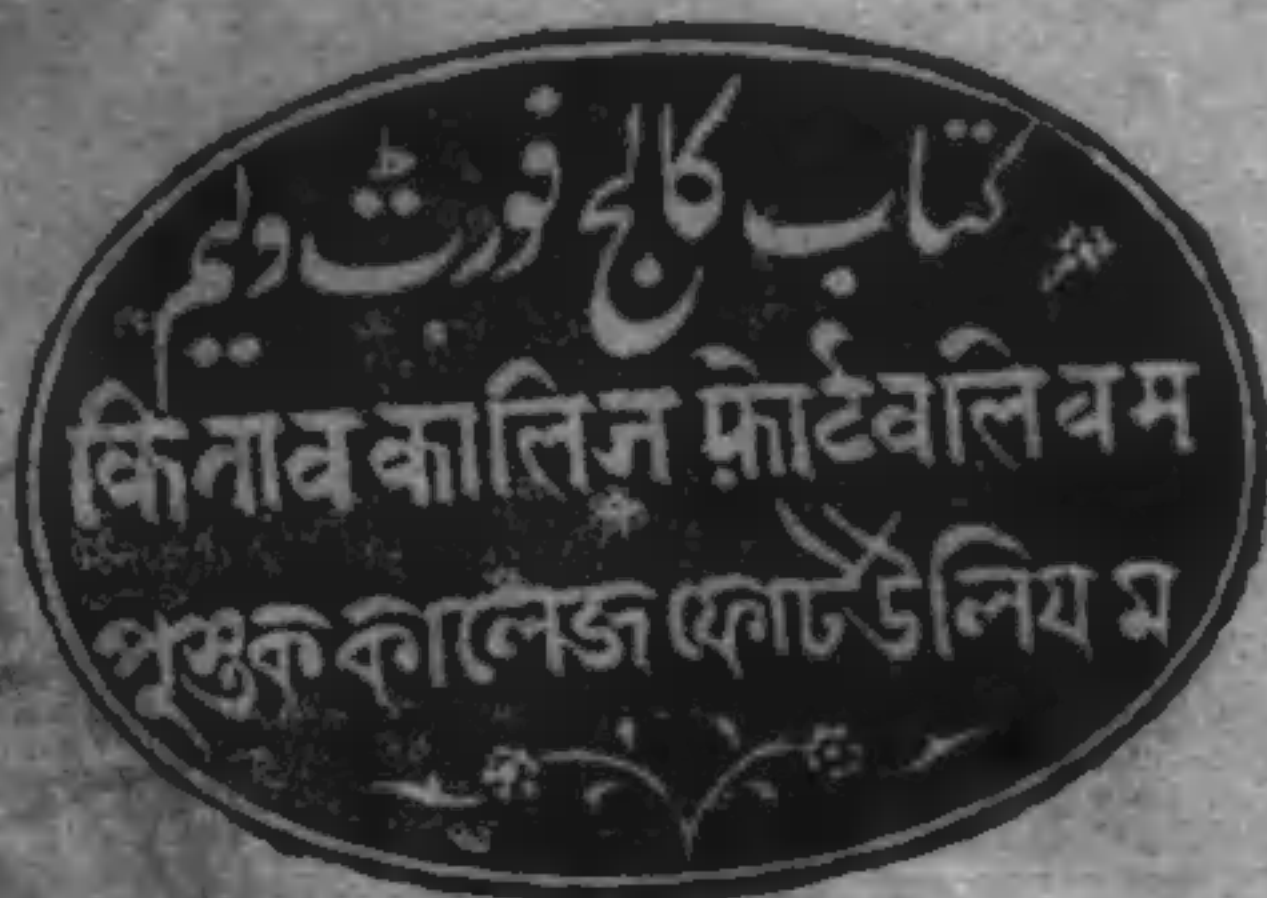 کتاب کالج فورٹ ولیم
किताब कालिज़ फ़ोर्टवलियम
পুস্তক কালেজ ফোর্ট উলিযম